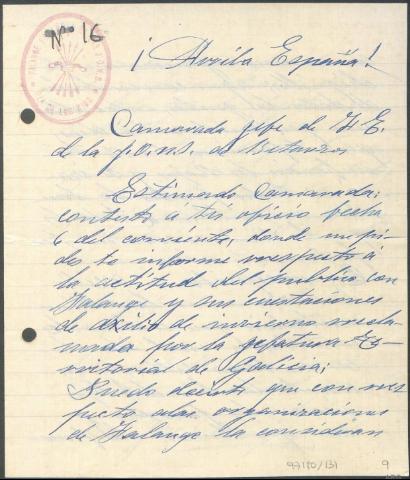 Nº 16
¡Arriba España!
Camarada jefe de F. E.
de la J.O.N.S. de Betanzos
Estimado Camarada:
contesto a tu oficio fecha
6 del corriente, donde me pi-
des te informe respecto á
la actitud del publico con
Falange y sus cuestaciones
de auxilio de invierno recla-
mada por la gefatura te-
rritorial de Galicia;
Puedo decirte que con res-
pecto a las organizaciones
de Falange la consideran
97180/131
9